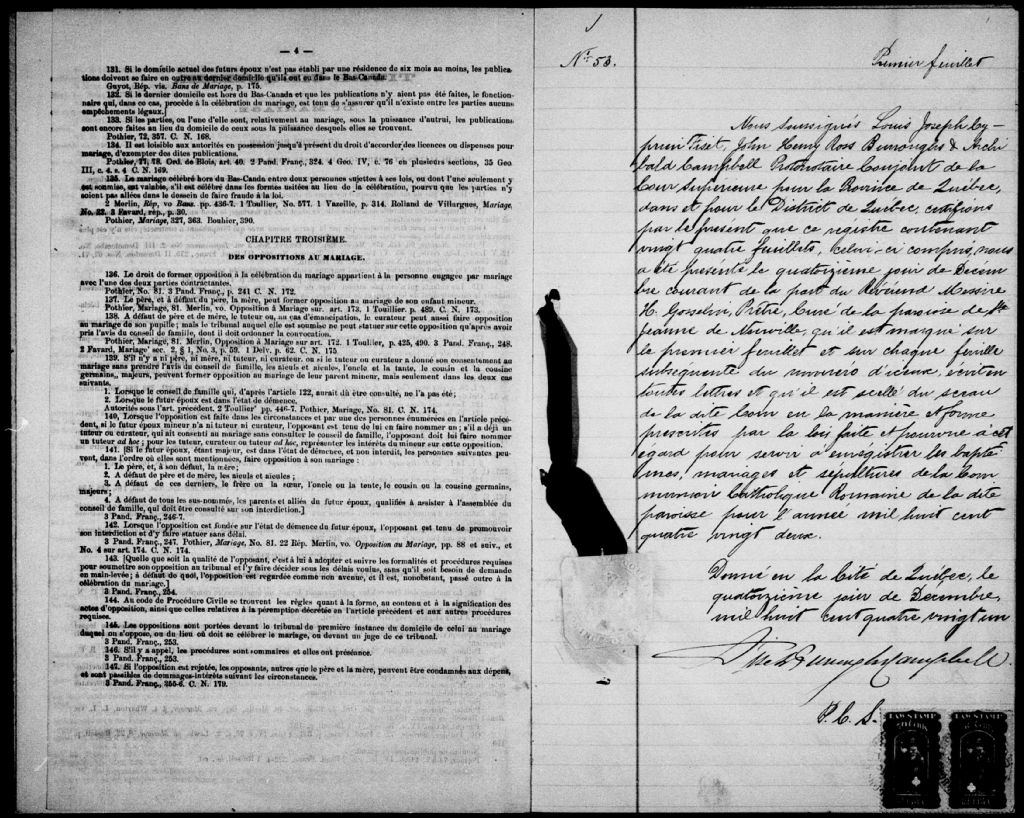 — 4 —
131. Si le domicile actuel des futurs époux n'est pas établi par une résidence de six mois au moins, les publica-
tions doivent se faire en outre au dernier domicile qu'ils ont eu dans le Bas-Canada.
Guyot, Rép. vis. Bans de Mariage, p. 175.
132. Si le dernier domicile est hors du Bas-Canada et que les publications n'y aient pas été faites, le fonction-
naire qui, dans ce cas, procède à la célébration du mariage, est tenu de s'assurer qu'il n'existe entre les parties aucuns
empêchements légaux.]
133. Si les parties, ou l'une d'elle sont, relativement au mariage, sous la puissance d'autrui, les publications
sont encore faites au lieu du domicile de ceux sous la puissance desquels elles se trouvent.
Pothier, 72, 357. C. N. 168.
134. Il est loisible aux autorités en possession jusqu'à présent du droit d'accorder des licences ou dispenses pour
mariage, d'exempter des dites publications.
Pothier, 77, 78. Ord. de Blois, art. 40. 2 Pand. Franç., 324. 4 Geo. IV, c. 76 en plusieurs sections, 35 Geo.
III, c. 4. s. 4 C. N. 169.
135. Le mariage célébré hors du Bas-Canda entre deux personnes sujettes à ses lois, ou dont l'une seulement y
est soumise, est valable, s'il est célébré dans les formes usitées au lieu de la célébration, pourvu que les parties n'y
soient pas allées dans le dessein de faire fraude à la loi.
2 Merlin, Rép, vo Bans. pp. 436-7. 1 Toullier, No. 577. 1 Vazeille, p. 314. Rolland de Villargues, Mariage,
No. 23. 3 Favard, rép., p. 30.
Pothier, Mariage, 327, 363. Bouhier, 390.
CHAPITRE TROISIÈME.
DES OPPOSITIONS AU MARIAGE.
136. Le droit de former opposition à la célébration du mariage appartient à la personne engagée par mariage
avec l'une des deux parties contractantes.
Pothier, No. 81. 3 Pand. Franç., p. 241 C. N. 172.
137. Le père, et à défaut du père, la mère, peut former opposition au mariage de son enfant mineur.
Pothier, Mariage, 81. Merlin, vo. Opposition à Mariage sur art. 173, 1 Touillier. p. 489. C. N. 173.
138. A défaut de père et de mère, le tuteur, ou au cas d'émancipation, le curateur peut aussi former opposition
au mariage de son pupille; mais le tribunal auquel elle est soumise ne peut statuer sur cette opposition qu'après avoir
pris l'avis du conseil de famille, dont il doit ordonner la convocation.
Pothier, Mariage, 81. Merlin, Opposition à Mariage sur art. 172. 1 Toullier, p. 425, 490. 3 Pand. Franç., 248.
2 Favard, Mariage' sec. 2, § 1, No. 3, p. 59. 1 Delv. p. 62. C. N. 175.
139. S'il n'y a ni père, ni mère, ni tuteur, ni curateur. ou si le tuteur ou curateur a donné son consentement au
mariage sans prendre l'avis du conseil de famille, les aïeuls et aïeules, l'oncle et la tante, le cousin et la cousine
germains, majeurs, peuvent former opposition au mariage de leur parent mineur, mais seulement dans les deux cas
suivants.
1. Lorsque le conseil de famille qui, d'après l'article 122, aurait dû être consulté, ne l'a pas été;
2. Lorsque le futur époux est dans l'état de démence.
Autorités sous l'art. précédent. 2 Toullier' pp. 446-7. Pothier, Mariage, No. 81. C. N. 174.
140, Lorsque l'opposition est faite dans les circonstances et par une des personnes énumérées en l'article précé-
dent, si le futur époux mineur n'a ni tuteur ni curateur, l'opposant est tenu de lui en faire nommer un; s'il a déjà un
tuteur ou curateur, qui ait consenti au mariage sans consulter le conseil de famille, l'opposant doit lui faire nommer
un tuteur ad hoc; pour les tuteur, curateur ou tuteur ad hoc, représenter les intérêts du mineur sur cette opposition.
141. [Si le futur époux, étant majeur, est dans l'état de démence, et non interdit, les personnes suivantes peu-
vent, dans l'ordre où elles sont mentionnées, faire opposition à son mariage:
1. Le père, et, à son défaut, la mère;
2. A défaut de père et de mère, les aïeuls et aïeules;
3. A défaut de ces derniers, le frère ou la sœur, l'oncle ou la tante, le cousin ou la cousine germains,
majeurs;
4. A défaut de tous les sus-nommés, les parents et alliés du futur époux, qualifiés à assister à l'assemblée du
conseil de famille, qui doit être consulté sur son interdiction.]
3 Pand. Franç., 246-7.
142. Lorsque l'opposition est fondée sur l'état de démence du futur époux, l'opposant est tenu de promouvoir
son interdiction et d'y faire statuer sans délai.
3 Pand. Franç., 247. Pothier, Mariage, No. 81. 22 Rép. Merlin, vo. Opposition au Mariage, pp. 88 et suiv., et
No. 4 sur art. 174. C. N. 174.
143. [Quelle que soit la qualité de l'opposant, c'est à lui à adopter et suivre les formalités et procédures requises
pour soumettre son opposition au tribunal et l'y faire décider sous les délais voulus, sans qu'il soit besoin de demande
en main-levée; à défaut de quoi, l'opposition est regardée comme non avenue, et il est, nonobstant, passé outre à la
célébration du mariage.]
3 Pand. Franç., 254.
144. Au code de Procédure Civile se trouvent les règles quant à la forme, au contenu et à la signification des
actes d'opposition, ainsi que celles relatives à la péremption décrétée en l'article précédent et aux autres procédures
requises.
145. Les oppositions sont portées devant le tribunal de première instance du domicile de celui au mariage
duquel on s'oppose, ou du lieu où doit se célébrer le mariage, ou devant un juge de ce tribunal.
3 Pand. Franç., 253.
146. S'il y a appel, les procédures sont sommaires et elles ont préséance.
3 Pand. Franç., 253.
147. Si l'opposition est rejetée, les opposants, autres que le père et la mère, peuvent être condamnés aux dépens,
et sont passibles de dommages-intérêts suivant les circonstances.
3 Pand. Franç., 255-6. C. N. 179.
No. 53.
Premier feuillet
Nous soussignés Louis Joseph Cy-
prien Fiset, John Henry Ross Burroughs & Archi
bald Campbell Protonotaire Conjoint de la
Cour Superieure pour la Province de Québec,
dans et pour le District de Québec, certifions
par le présent que ce registre contenant
vingt quatre feuillets, celui-ci compris, nous
a été présenté le quatorzième jour de Décem
bre courant de la part du Révérend Messire
H. Gosselin, Prêtre, Curé de la paroisse de Ste
Jeanne de Neuville, qu'il est marqué sur
le premier feuillet et sur chaque feuille
subséquente du numéro d'iceux, écrit en
toutes lettres et qu'il est scellé du sceau
de la dite Cour en la manière et forme
prescrites par la loi faite et pourvue à cet
egard pour servir à enregistrer les baptê
mes, mariages et sépultures de la Com
munion Catholique Romaine de la dite
paroisse pour l'année mil huit cent
quatre vingt deux.
Donné en la Cité de Québec, le
quatorzième jour de Décembre,
mil huit cent quatre vingt un
Fiset Burroughs Campbell
P. C. S.
LAW STAMP
LAW STAMP